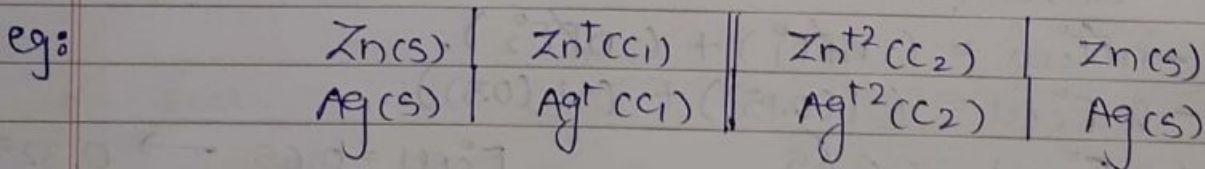 eg: Zn(s) | Zn⁺(C₁) || Zn⁺²(C₂) | Zn(s)
Ag(s) | Ag⁺(C₁) || Ag⁺²(C₂) | Ag(s)